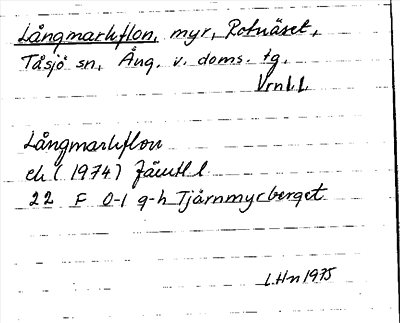 Långmarkflon, myr, Rotnäset,
Tåsjö sn, Ång. v. doms. tg.
Vrnl. l.
Långmarkflon
ek (1974) Jämtl l
22 F 0-1 g-h Tjärnmyrberget
l.Hn 1975